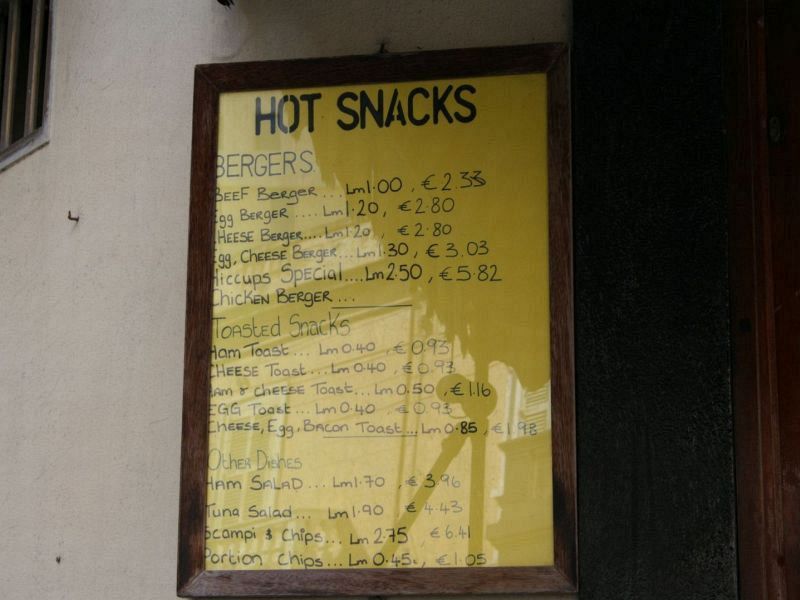 HOT SNACKS
BERGERS
BEEF Berger... Lm1.00, €2.33
Egg Berger..... Lm1.20, €2.80
CHEESE Berger.... Lm1.20, €2.80
Egg, Cheese Berger... Lm1.30, €3.03
Hiccups Special.... Lm2.50, €5.82
Chicken Berger...
Toasted Snacks
Ham Toast... Lm0.40, €0.93
CHEESE Toast... Lm0.40, €0.93
Ham & cheese Toast... Lm0.50, €1.16
EGG Toast... Lm0.40, €0.93
Cheese, Egg, Bacon Toast... Lm0.85, €1.98
Other Dishes
Ham Salad... Lm1.70, €3.96
Tuna Salad... Lm1.90, €4.43
Scampi & Chips... Lm2.75, €6.41
Portion Chips... Lm0.45, €1.05